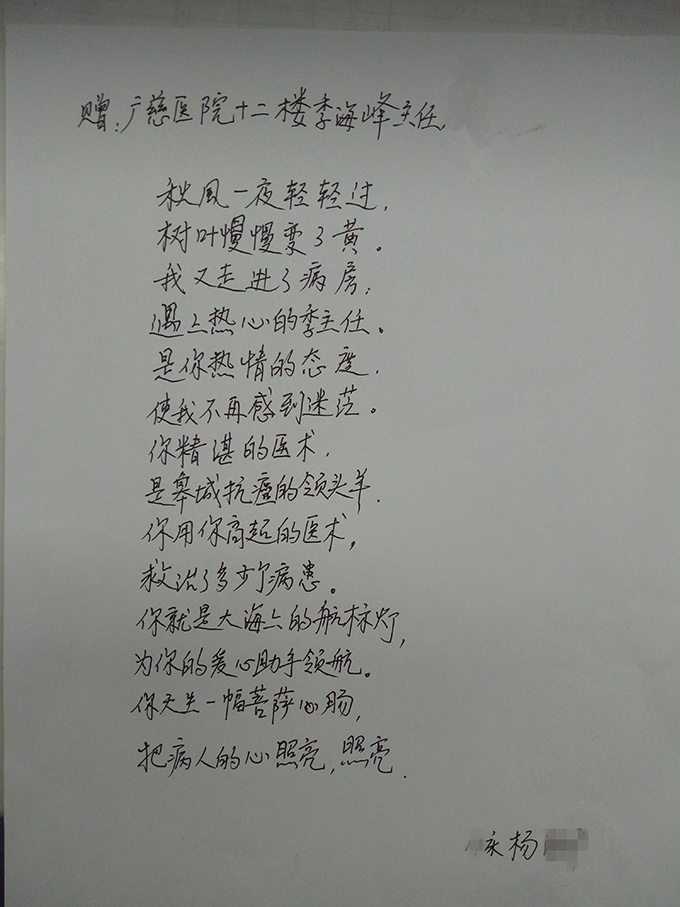 赠:广慈医院十二楼季海峰主任,
秋风一夜轻轻过,
树叶慢慢变了黄。
我又走进了病房,
遇上热心的季主任。
是你热情的态度,
使我不再感到迷茫。
你精湛的医术,
是皋城抗癌的领头羊.
你用你高超的医术,
救治了多少个病患。
你就是大海上的航标灯,
为你的爱心助手领航。
你天生一幅菩萨心肠,
把病人的心照亮,照亮.
杨